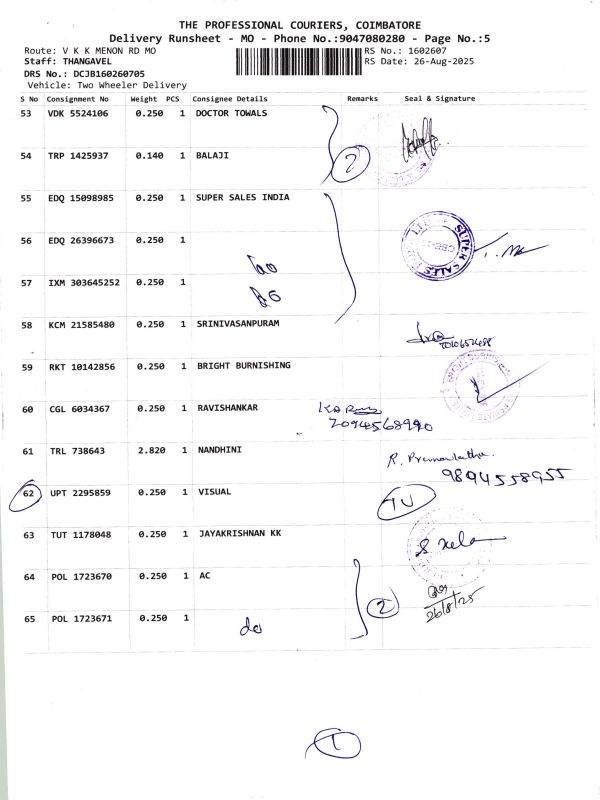 THE PROFESSIONAL COURIERS, COIMBATORE
Delivery Runsheet - MO - Phone No.:9047080280 - Page No.:5
Route: V K K MENON RD MO RS No.: 1602607
Staff: THANGAVEL RS Date: 26-Aug-2025
DRS No.: DCJB160260705
Vehicle: Two Wheeler Delivery
S No Consignment No Weight PCS Consignee Details Remarks Seal & Signature
53 VDK 5524106 0.250 1 DOCTOR TOWALS
2
54 TRP 1425937 0.140 1 BALAJI
55 EDQ 15098985 0.250 1 SUPER SALES INDIA
SUPER SALES
56 EDQ 26396673 0.250 1
57 IXM 303645252 0.250 1
58 KCM 21585480 0.250 1 SRINIVASANPURAM
59 RKT 10142856 0.250 1 BRIGHT BURNISHING
60 CGL 6034367 0.250 1 RAVISHANKAR
61 TRL 738643 2.820 1 NANDHINI
R. Premalatha
9894558955
62 UPT 2295859 0.250 1 VISUAL
63 TUT 1178048 0.250 1 JAYAKRISHNAN KK
64 POL 1723670 0.250 1 AC
2
26/8/25
65 POL 1723671 0.250 1
do
1